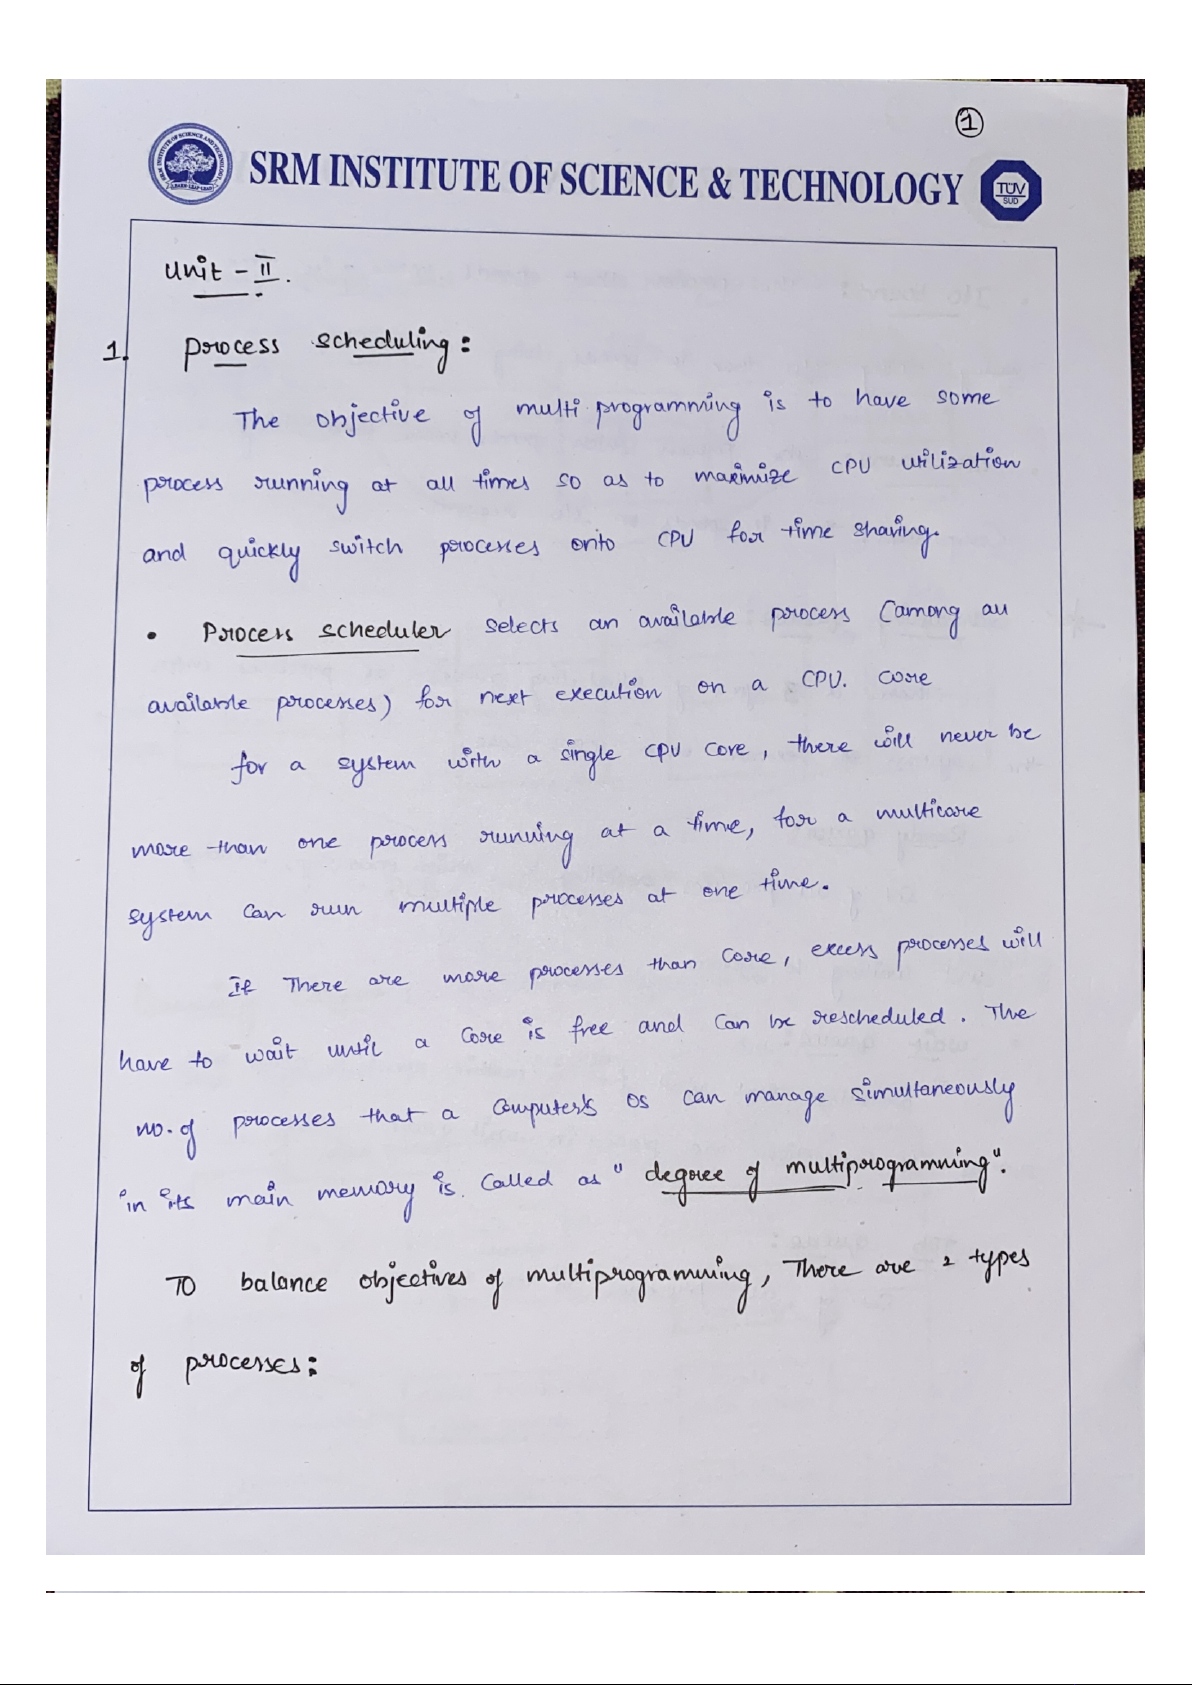 1
SRM INSTITUTE OF SCIENCE & TECHNOLOGY
TÜV
SUD
Unit - II.
1. process scheduling:
The objective of multi programming is to have some
process running at all times so as to maximize CPU utilization
and quickly switch processes onto CPU for time sharing.
• Process scheduler selects an available process (among all
available processes) for next execution on a CPU. core
for a system with a single CPU core, there will never be
more than one process running at a time, for a multicore
system can run multiple processes at one time.
If There are more processes than core, excess processes will
have to wait until a core is free and can be rescheduled. The
no. of processes that a computer's os can manage simultaneously
in its main memory is called as "degree of multiprogramming".
To balance objectives of multiprogramming, There are 2 types
of processes: